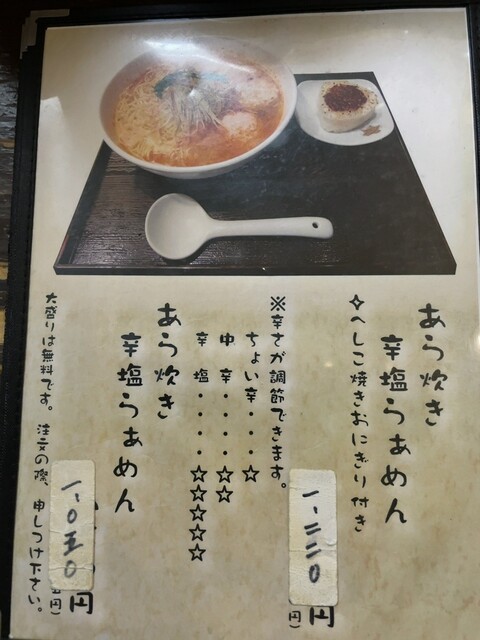 あら炊き
辛塩らぁめん
✧へしこ焼きおにぎり付き
一、二二〇円
円)
※辛さが調節できます。
ちょい辛・・・・☆
中辛・・・・☆☆
辛塩・・・・☆☆☆☆☆
あら炊き
辛塩らぁめん
一、〇五〇円
円)
大盛りは無料です。注文の際、申しつけ下さい。